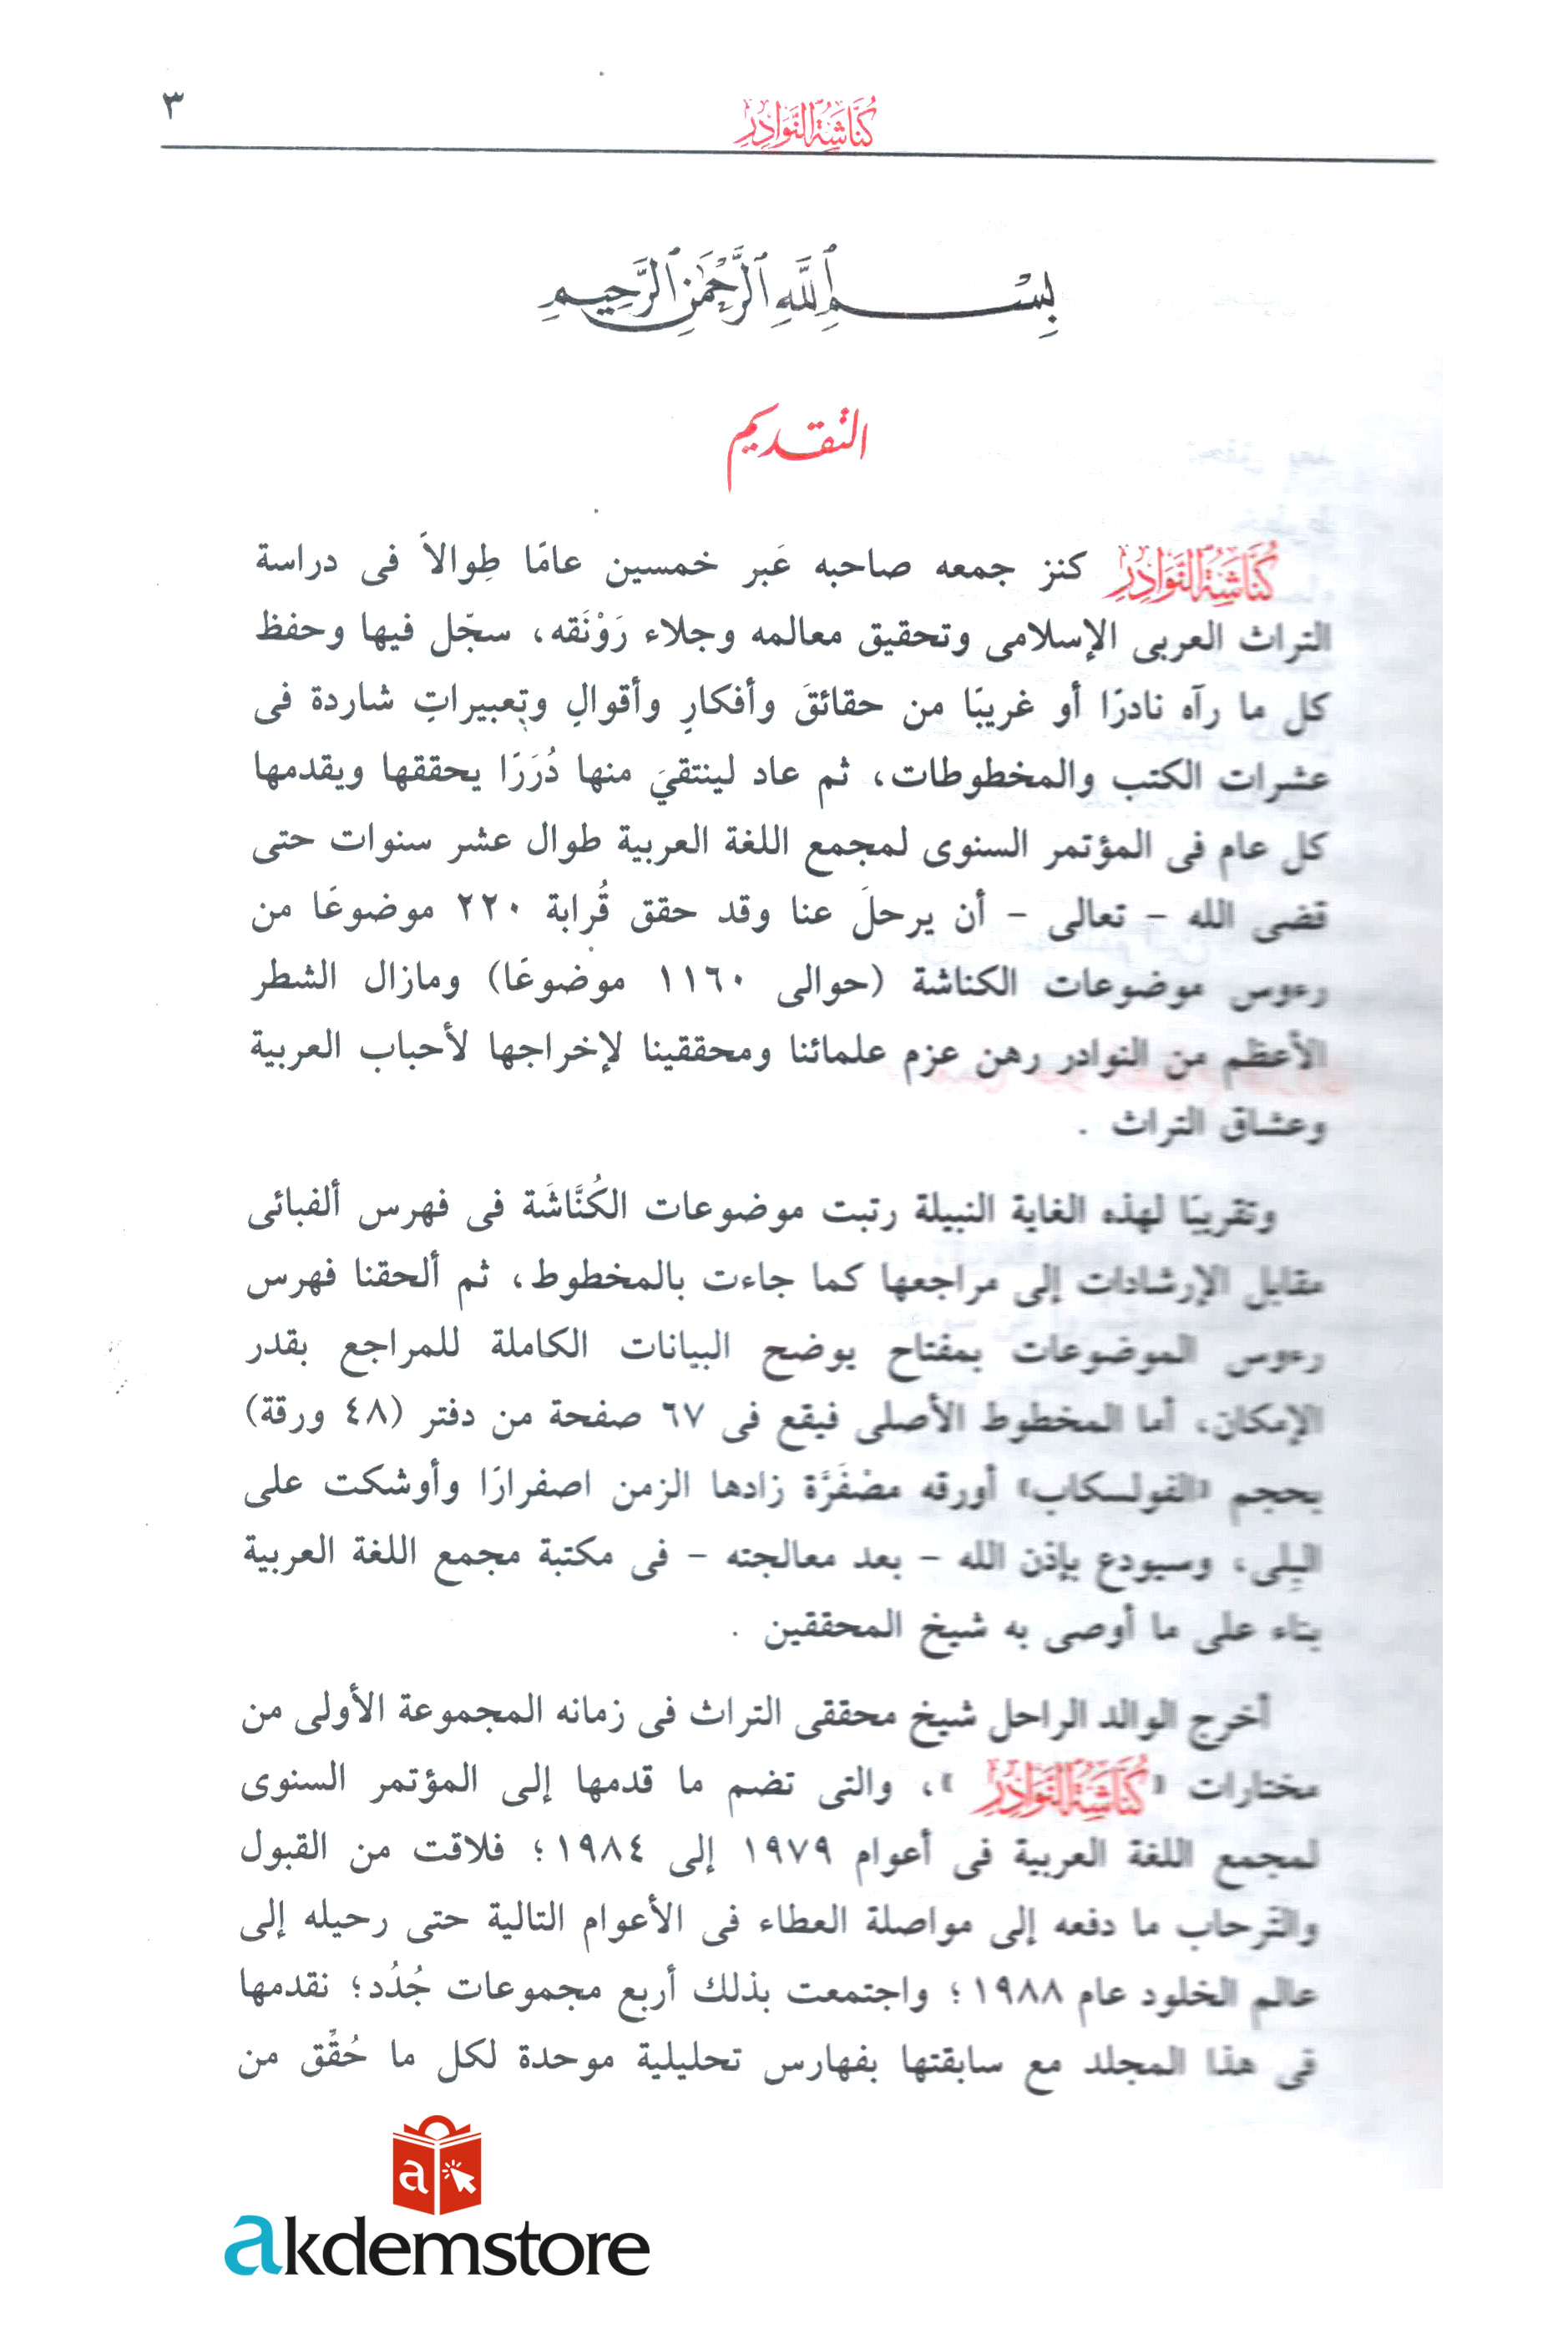 كُنَّاشَةُ النَّوَادِرِ
٣
بِسْمِ ٱللَّهِ ٱلرَّحْمَٰنِ ٱلرَّحِيمِ
التقديم
كُنَّاشَةُ النَّوَادِرِ كنز جمعه صاحبه عَبر خمسين عامًا طِوالاً فى دراسة
التراث العربى الإسلامى وتحقيق معالمه وجلاء رَوْنَقه، سجّل فيها وحفظ
كل ما رآه نادرًا أو غريبًا من حقائقَ وأفكارٍ وأقوالِ وتعبيراتِ شاردة فى
عشرات الكتب والمخطوطات، ثم عاد لينتقيَ منها دُرَرًا يحققها ويقدمها
كل عام فى المؤتمر السنوى لمجمع اللغة العربية طوال عشر سنوات حتى
قضى الله - تعالى - أن يرحلَ عنا وقد حقق قُرابة ٢٢٠ موضوعًا من
رءوس موضوعات الكناشة (حوالى ١١٦٠ موضوعًا) ومازال الشطر
الأعظم من النوادر رهن عزم علمائنا ومحققينا لإخراجها لأحباب العربية
وعشاق التراث .
وتقريبًا لهذه الغاية النبيلة رتبت موضوعات الكُنَّاشَة فى فهرس ألفبائى
مقابل الإرشادات إلى مراجعها كما جاءت بالمخطوط، ثم ألحقنا فهرس
رءوس الموضوعات بمفتاح يوضح البيانات الكاملة للمراجع بقدر
الإمكان، أما المخطوط الأصلى فيقع فى ٦٧ صفحة من دفتر (٤٨ ورقة)
بحجم «الفولسكاب» أورقه مصْفَرَّة زادها الزمن اصفرارًا وأوشكت على
البِلى، وسيودع بإذن الله - بعد معالجته - فى مكتبة مجمع اللغة العربية
بناء على ما أوصى به شيخ المحققين .
أخرج الوالد الراحل شيخ محققى التراث فى زمانه المجموعة الأولى من
مختارات «كُنَّاشَةُ النَّوَادِرِ»، والتى تضم ما قدمها إلى المؤتمر السنوى
لمجمع اللغة العربية فى أعوام ١٩٧٩ إلى ١٩٨٤؛ فلاقت من القبول
والتَرحاب ما دفعه إلى مواصلة العطاء فى الأعوام التالية حتى رحيله إلى
عالم الخلود عام ١٩٨٨؛ واجتمعت بذلك أربع مجموعات جُدُد؛ نقدمها
فى هذا المجلد مع سابقتها بفهارس تحليلية موحدة لكل ما حُقِّق من
a
akdemstore